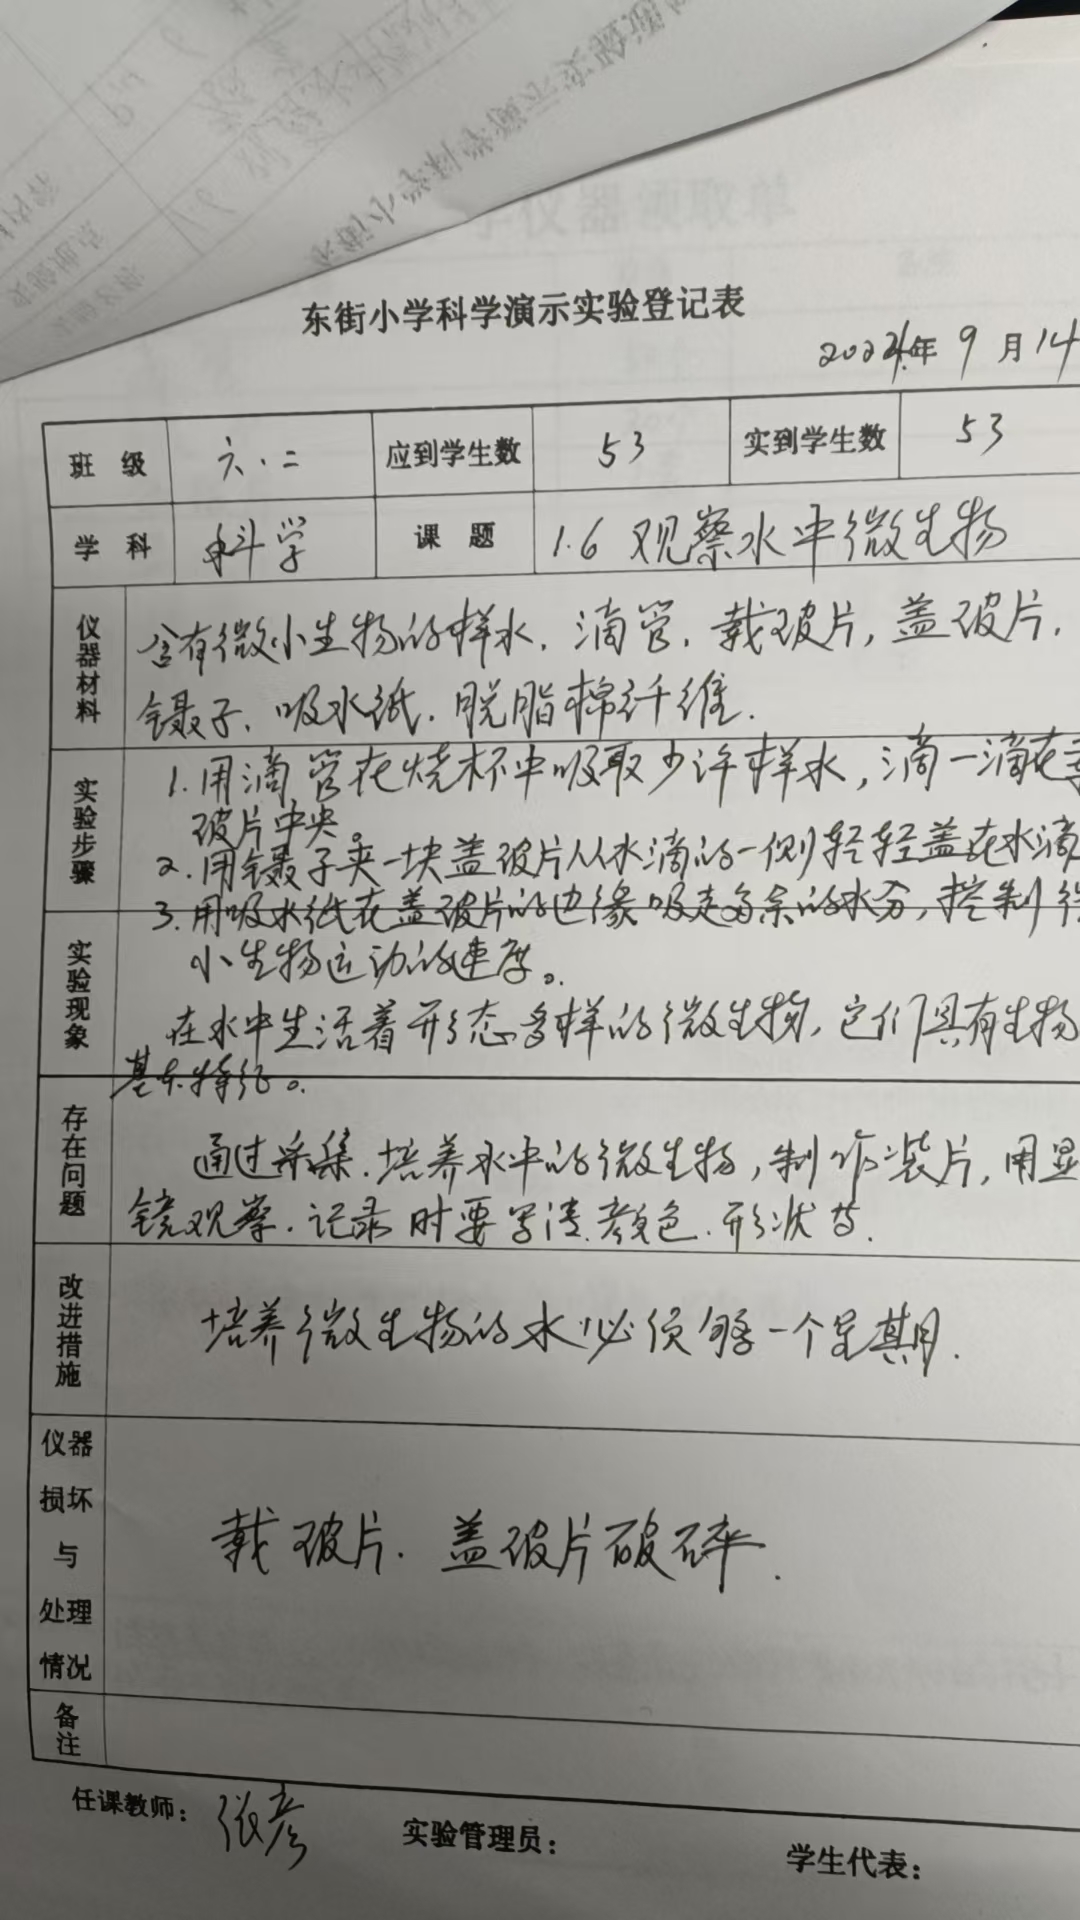 学仪器领取单
东街小学科学演示实验登记表
2024年 9 月 14
班 级 六.二 应到学生数 53 实到学生数 53
学 科 科学 课 题 1.6 观察水中微生物
仪器材料 含有微小生物的样水. 滴管. 载玻片, 盖玻片.
镊子. 吸水纸. 脱脂棉纤维.
实验步骤 1. 用滴管在烧杯中吸取少许样水, 滴一滴在
玻片中央。
2. 用镊子夹一块盖玻片从水滴的一侧轻轻盖在水滴
3. 用吸水纸在盖玻片的边缘吸走多余的水分, 控制
小生物运动的速度。
实验现象 在水中生活着形态多样的微生物, 它们具有生物
基本特征。
存在问题 通过采集. 培养水中的微生物, 制作装片, 用显
镜观察. 记录时要写清. 颜色. 形状等.
改进措施 培养微生物的水必须够一个星期.
仪器损坏与处理情况 载玻片. 盖玻片破碎.
备注
任课教师: 张彦 实验管理员: 学生代表: